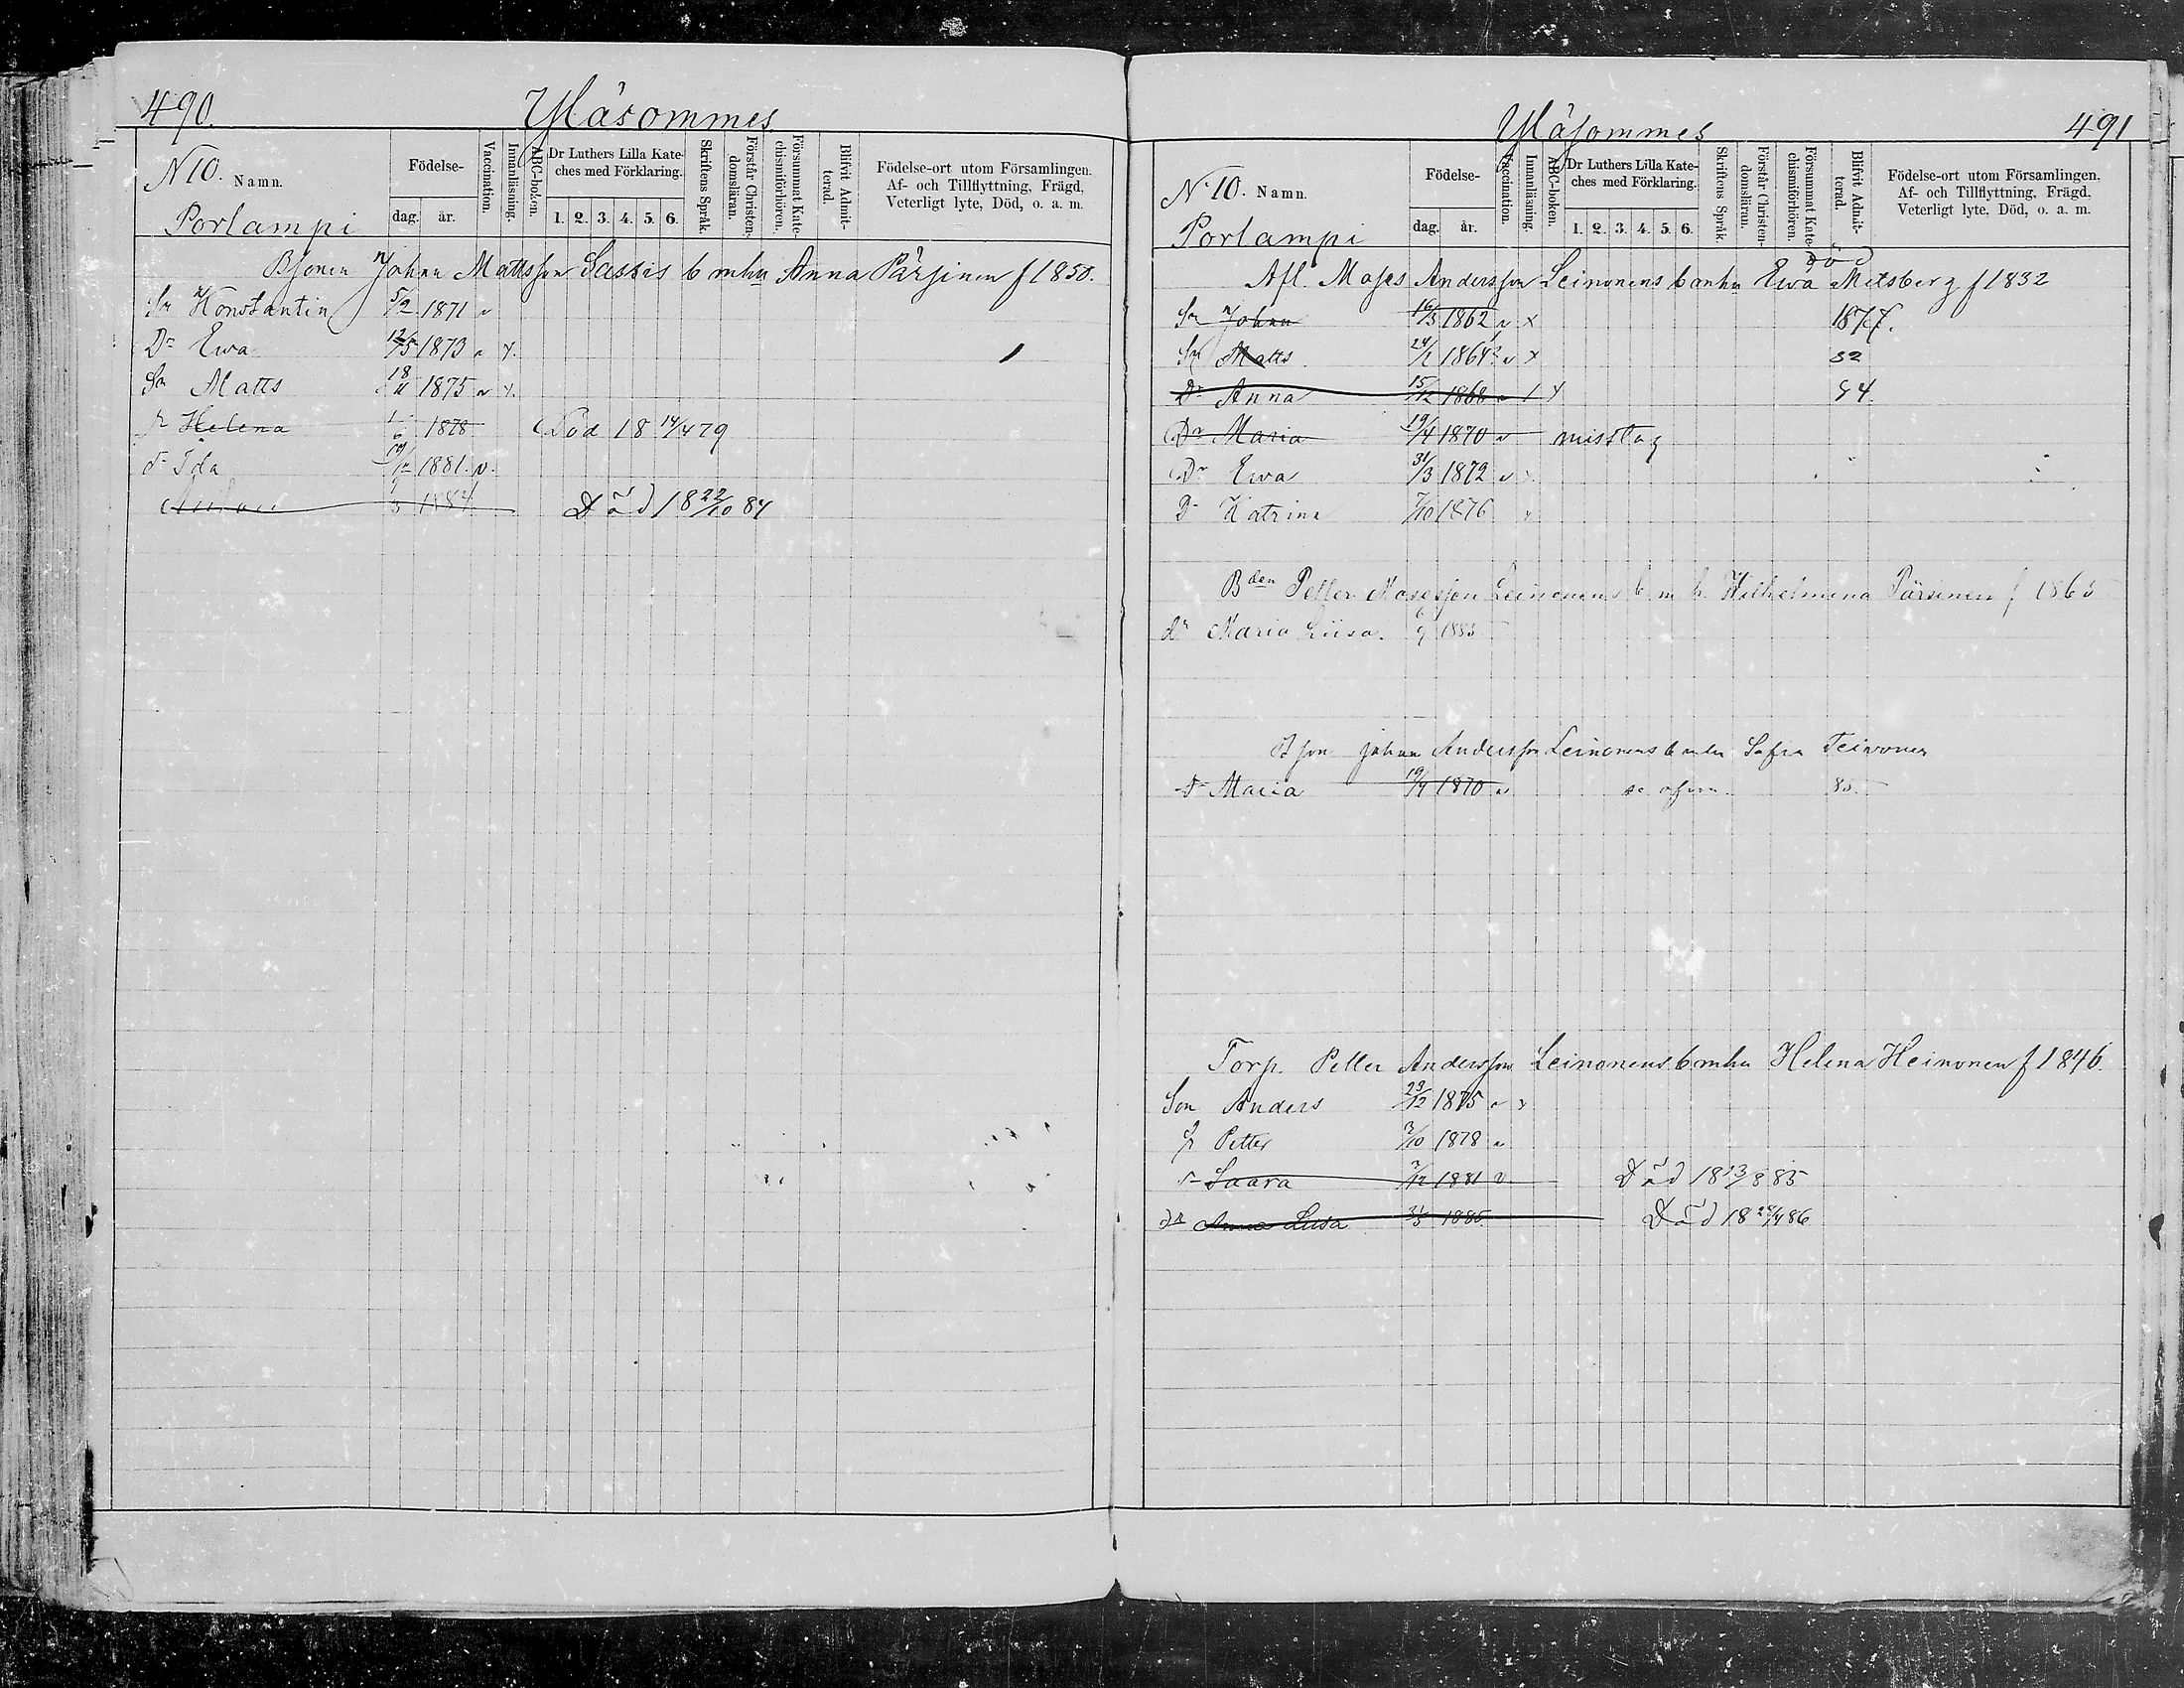 490.
Yläsommes
N 10. Namn.
Porlampi
Födelse-
dag. år.
Vaccination.
Innanläsning.
ABC-boken.
Dr Luthers Lilla Kate-
ches med Förklaring.
1. 2. 3. 4. 5. 6.
Skriftens Språk.
Förstår Christen-
domsläran.
Försummat Kate-
chismiförhören.
Blifvit Admit-
terad.
Födelse-ort utom Församlingen.
Af- och Tillflyttning, Frägd,
Veterligt lyte, Död, o. a. m.
Bsonen Johan Mattsson Sassis b mhu Anna Pärsinen f 1850.
Sn Konstantin 5/2 1871 v
Dr Ewa 12/5 1873 v x
Sn Matts 18/11 1875 v x
Helena 1/6 1878 Död 18 14/4 79
dr Ida 1881. v.
1884 Död 18 22/10 84
Yläsommes
491
N. 10. Namn.
Porlampi
Födelse-
dag. år.
Vaccination.
Innanläsning.
ABC-boken.
Dr Luthers Lilla Kate-
ches med Förklaring.
1. 2. 3. 4. 5. 6.
Skriftens Språk.
Förstår Christen-
domsläran.
Försummat Kate-
chismiförhören.
Blifvit Admit-
terad.
Födelse-ort utom Församlingen.
Af- och Tillflyttning, Frägd,
Veterligt lyte, Död, o. a. m.
Död
Afl. Moses Andersson Leinonens b mhu Ewa Metsberg f 1832
Sn Johan 16/3 1862 v x 1877.
Sn Matts 24/1 1864 v x 82
Dr Anna 15/12 1868 v / x 84.
Dr Maria 19/4 1870 v misstag
Dr Ewa 31/3 1872 v x
Dr Katrina 7/10 1876 x
Bden Petter Mosesson Leinonens b m h. Wilhelmina Pärsinen f 1865
dr Maria Liisa. 6/9 1885
Bson Johan Andersson Leinonens b mhu Sofia Teivonen
dr Maria 19/4 1870 v se ofvan. 85.
Torp. Petter Andersson Leinonens b mhu Helena Heinonen f 1846.
Son Anders 29/12 1875 v x
Petter 3/10 1878 v
Saara 1881 v Död 18 13/8 85
dr Anna Liisa 31/5 1885. Död 18 28/4 86